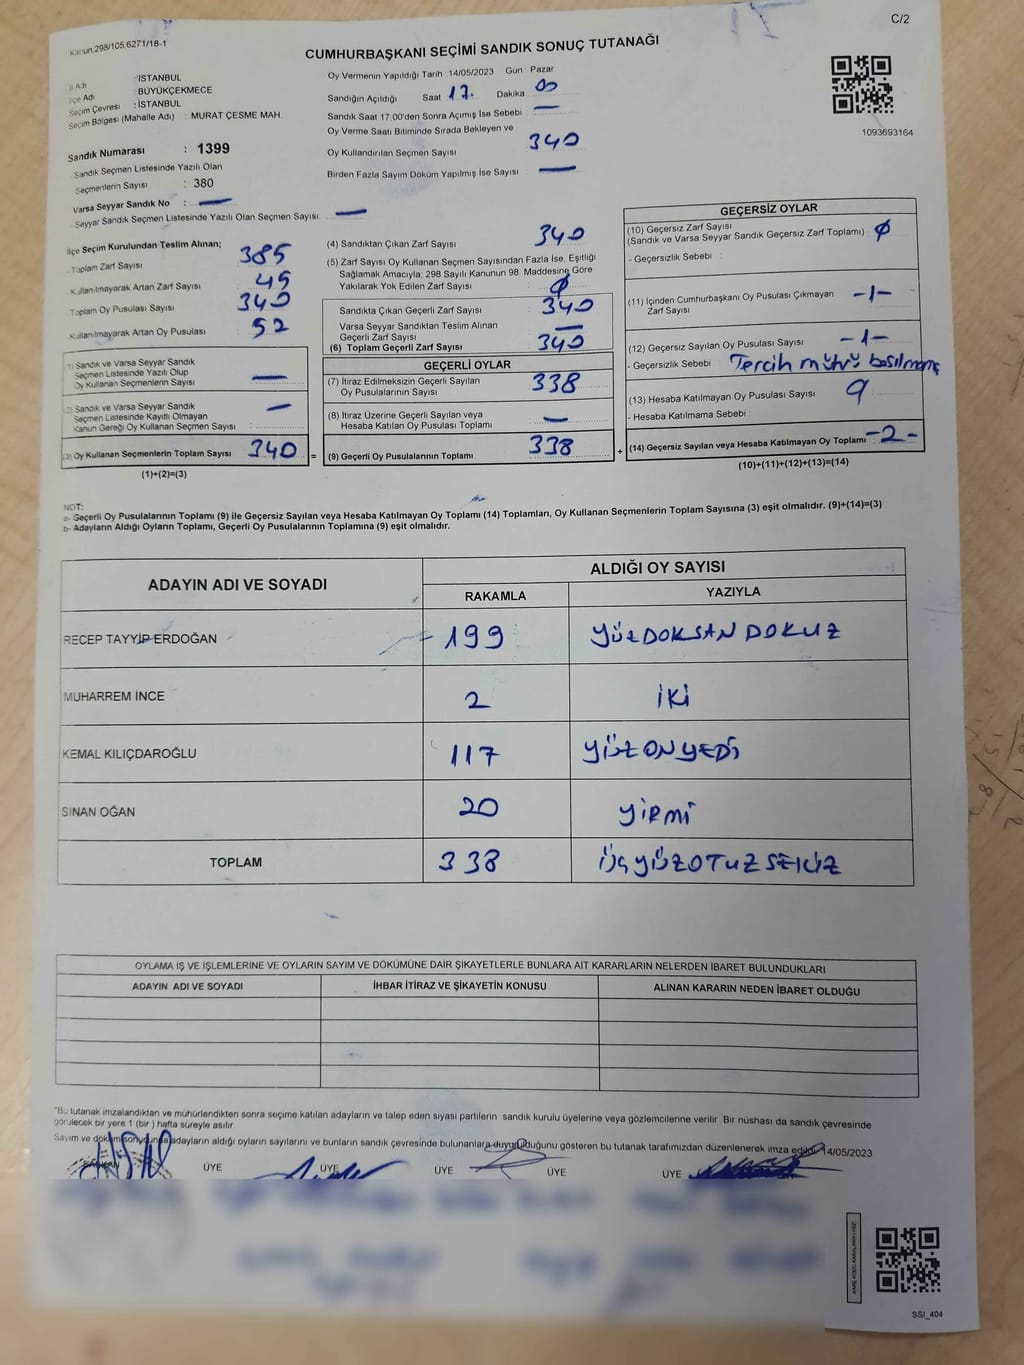 C/2
Kanun:298/105,6271/18-1
CUMHURBAŞKANI SEÇİMİ SANDIK SONUÇ TUTANAĞI
İl Adı : İSTANBUL
İlçe Adı : BÜYÜKÇEKMECE
Seçim Çevresi : İSTANBUL
Seçim Bölgesi (Mahalle Adı) : MURAT ÇESME MAH.
Sandık Numarası : 1399
Sandık Seçmen Listesinde Yazılı Olan
Seçmenlerin Sayısı : 380
Varsa Seyyar Sandık No : —
Seyyar Sandık Seçmen Listesinde Yazılı Olan Seçmen Sayısı: —
Oy Vermenin Yapıldığı Tarih 14/05/2023 Gün Pazar
Sandığın Açıldığı Saat 17. Dakika 00
Sandık Saat 17.00'den Sonra Açımış İse Sebebi : —
Oy Verme Saati Bitiminde Sırada Bekleyen ve
Oy Kullandırılan Seçmen Sayısı 340
Birden Fazla Sayım Döküm Yapılmış İse Sayısı : —
1093693164
İlçe Seçim Kurulundan Teslim Alınan;
Toplam Zarf Sayısı 385
Kullanılmayarak Artan Zarf Sayısı : 45
Toplam Oy Pusulası Sayısı 340
Kullanılmayarak Artan Oy Pusulası : 52
(1) Sandık ve Varsa Seyyar Sandık
Seçmen Listesinde Yazılı Olup
Oy Kullanan Seçmenlerin Sayısı : —
(2) Sandık ve Varsa Seyyar Sandık
Seçmen Listesinde Kayıtlı Olmayan
Kanun Gereği Oy Kullanan Seçmen Sayısı : —
(3) Oy Kullanan Seçmenlerin Toplam Sayısı 340 =
(1)+(2)=(3)
(4) Sandıktan Çıkan Zarf Sayısı 340
(5) Zarf Sayısı Oy Kullanan Seçmen Sayısından Fazla İse, Eşitliği
Sağlamak Amacıyla; 298 Sayılı Kanunun 98. Maddesine Göre
Yakılarak Yok Edilen Zarf Sayısı : Ø
Sandıkta Çıkan Geçerli Zarf Sayısı : 340
Varsa Seyyar Sandıktan Teslim Alınan
Geçerli Zarf Sayısı : —
(6) Toplam Geçerli Zarf Sayısı 340
GEÇERLİ OYLAR
(7) İtiraz Edilmeksizin Geçerli Sayılan
Oy Pusulalarının Sayısı : 338
(8) İtiraz Üzerine Geçerli Sayılan veya
Hesaba Katılan Oy Pusulası Toplamı : —
(9) Geçerli Oy Pusulalarının Toplamı 338 +
GEÇERSİZ OYLAR
(10) Geçersiz Zarf Sayısı
(Sandık ve Varsa Seyyar Sandık Geçersiz Zarf Toplamı) : Ø
- Geçersizlik Sebebi :
(11) İçinden Cumhurbaşkanı Oy Pusulası Çıkmayan
Zarf Sayısı -1-
(12) Geçersiz Sayılan Oy Pusulası Sayısı -1-
- Geçersizlik Sebebi : Tercih mührü basılmamış
(13) Hesaba Katılmayan Oy Pusulası Sayısı
- Hesaba Katılmama Sebebi :
(14) Geçersiz Sayılan veya Hesaba Katılmayan Oy Toplamı : -2-
(10)+(11)+(12)+(13)=(14)
NOT:
a- Geçerli Oy Pusulalarının Toplamı (9) ile Geçersiz Sayılan veya Hesaba Katılmayan Oy Toplamı (14) Toplamları, Oy Kullanan Seçmenlerin Toplam Sayısına (3) eşit olmalıdır. (9)+(14)=(3)
b- Adayların Aldığı Oyların Toplamı, Geçerli Oy Pusulalarının Toplamına (9) eşit olmalıdır.
ADAYIN ADI VE SOYADI
ALDIĞI OY SAYISI
RAKAMLA YAZIYLA
RECEP TAYYİP ERDOĞAN 199 YÜZDOKSAN DOKUZ
MUHARREM İNCE 2 İKİ
KEMAL KILIÇDAROĞLU 117 YÜZ ONYEDİ
SİNAN OĞAN 20 YİRMİ
TOPLAM 338 ÜÇYÜZOTUZSEKİZ
OYLAMA İŞ VE İŞLEMLERİNE VE OYLARIN SAYIM VE DÖKÜMÜNE DAİR ŞİKAYETLERLE BUNLARA AİT KARARLARIN NELERDEN İBARET BULUNDUKLARI
ADAYIN ADI VE SOYADI İHBAR İTİRAZ VE ŞİKAYETİN KONUSU ALINAN KARARIN NEDEN İBARET OLDUĞU
*Bu tutanak imzalandıktan ve mühürlendikten sonra seçime katılan adayların ve talep eden siyasi partilerin sandık kurulu üyelerine veya gözlemcilerine verilir. Bir nüshası da sandık çevresinde
görülecek bir yere 1 (bir) hafta süreyle asılır.
Sayım ve döküm sonucunda adayların aldığı oyların sayılarını ve bunların sandık çevresinde bulunanlara duyurulduğunu gösteren bu tutanak tarafımızdan düzenlenerek imza edildi. 14/05/2023
BAŞKAN ÜYE ÜYE ÜYE ÜYE ÜYE
SSI_404